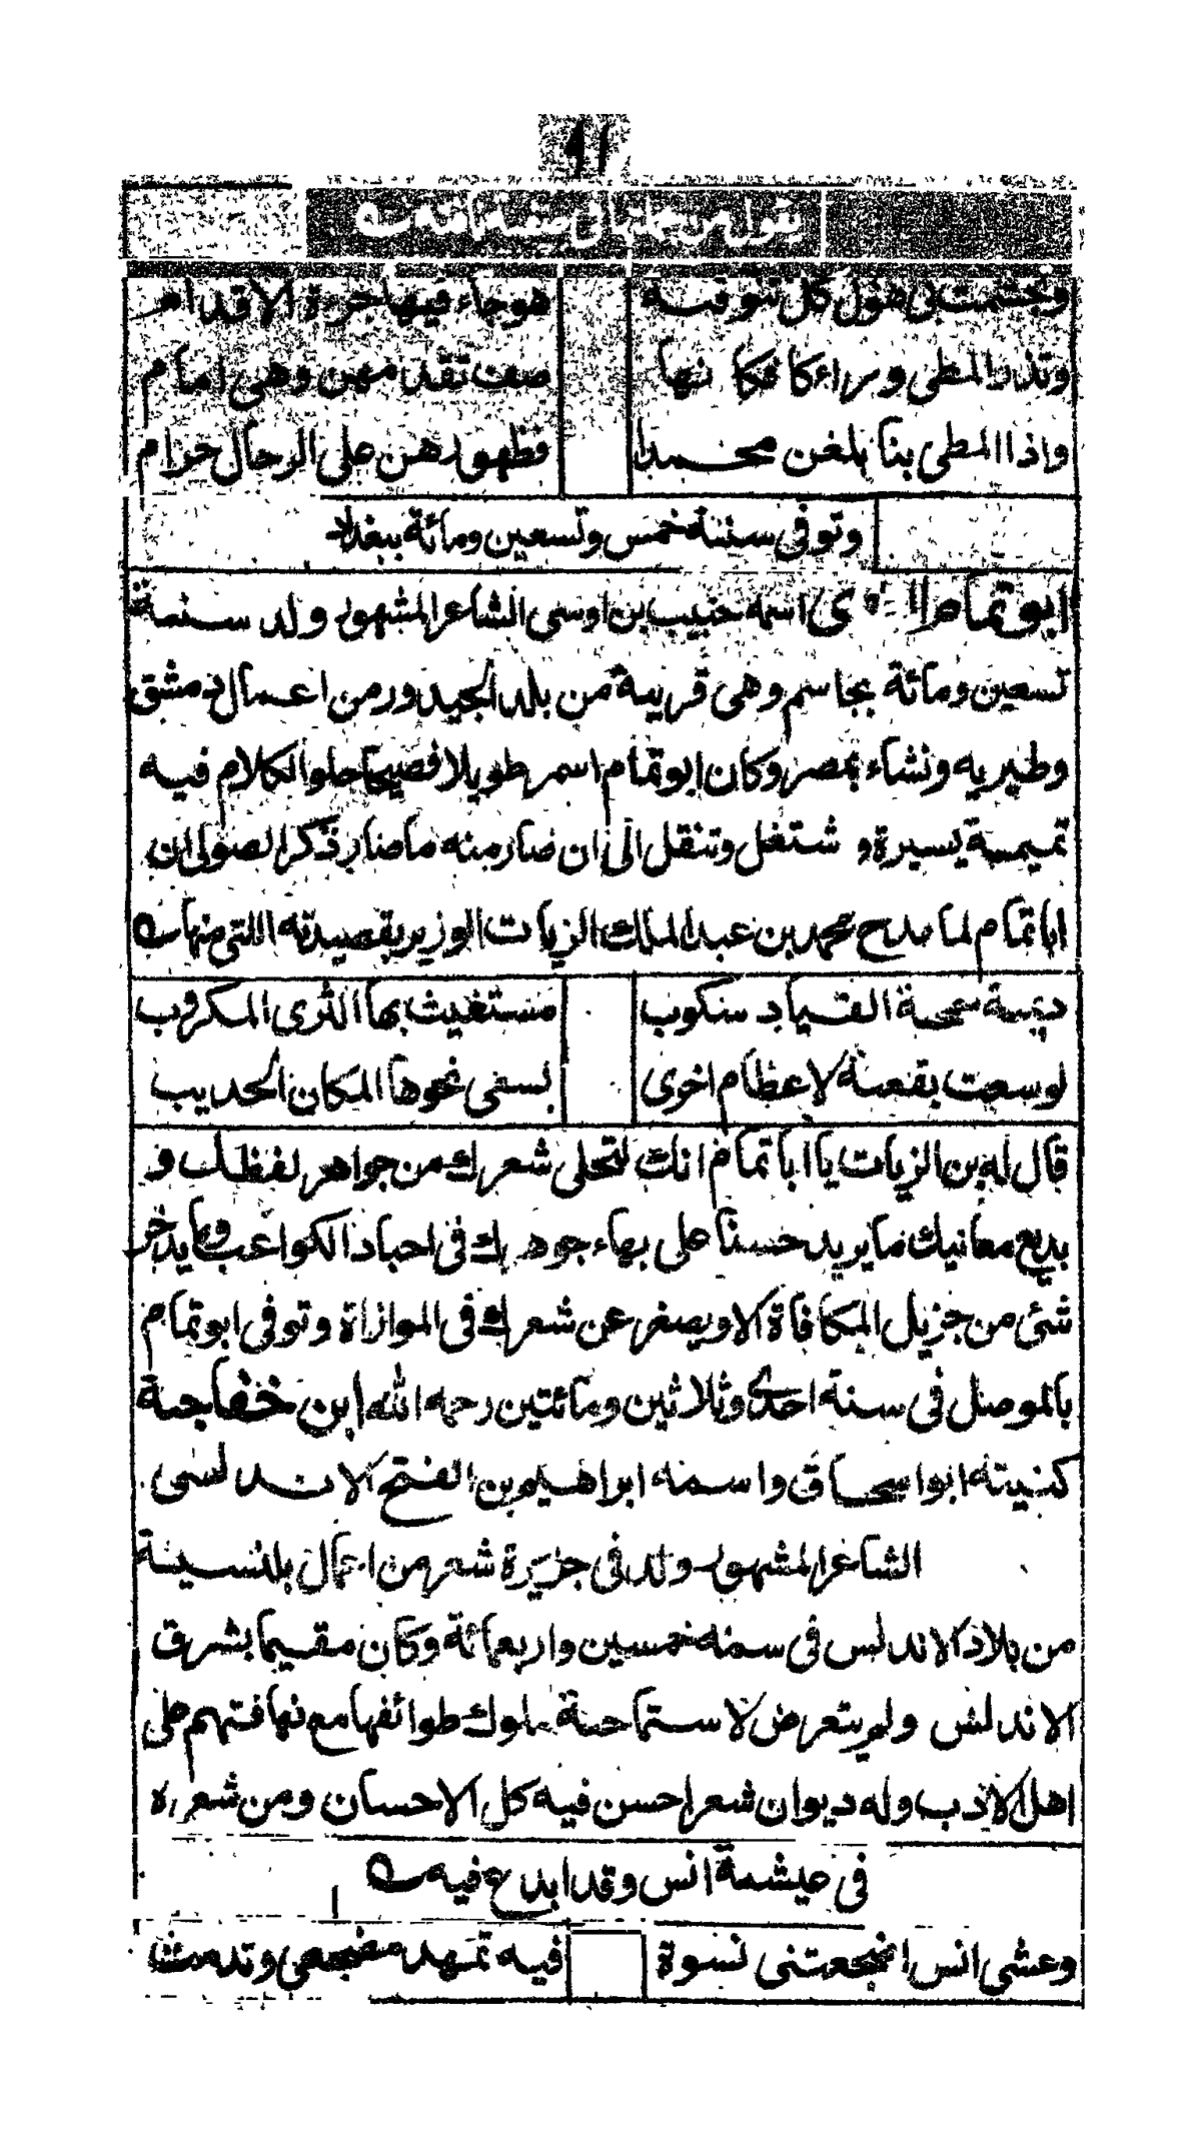 وتجشمت بی هول کل تنوفة هوجاء فیها جرءة الاقدام
وتذر المطی وراءها فکانها صف تقدمهن وهی امام
واذا المطی بنا بلغن محمدا فظهورهن علی الرحال حرام
وتوفی سنة خمس وتسعین ومائة ببغداد
ابو تمام اسمه حبیب بن اوسی الشاعر المشهور ولد سنة
تسعین ومائة بجاسم وهی قریة من بلد الجیدور من اعمال دمشق
وطبریه ونشاء بمصر وکان ابو تمام اسمر طویلا فصیحا حلو الکلام فیه
تمیمة یسیرة و شتغل وتنقل الی ان صار منه ما صار ذکر الصولی ان
ابا تمام لما مدح محمد بن عبد الملک الزیات الوزیر بقصیدته اللتی منها
دیمة سمحة القیاد سکوب مستغیث بها الثری المکروب
لو سعت بقعة لاعظام اخری لسعی نحوها المکان الجدیب
قال له بن الزیات یا ابا تمام انک لتحلی شعرک من جواهر لفظک و
بدیع معانیک ما یرید حسنا علی بهاء جوهرک فی اجیاد الکواعب وما یدخر
شئ من جزیل المکافاة الا ویصغر عن شعرک فی الموازاة وتوفی ابو تمام
بالموصل فی سنة احدی وثلاثین ومائتین رحمه الله ابن خفاجة
کنیته ابو اسحاق واسمه ابراهیم بن الفتح الاندلسی
الشاعر المشهور ولد فی جزیرة شعر من اعمال بلنسیة
من بلاد الاندلس فی سنه خمسین واربعمائة وکان مقیما بشرق
الاندلس ولم یتعرض لاستماحة ملوک طوائفها مع تهافتهم علی
اهل الادب وله دیوان شعر احسن فیه کل الاحسان ومن شعره
فی عیشة انس وقد ابدع فیه
وعشی انس اضجعتنی نسوة فیه تمهد مضجعی وتدمث